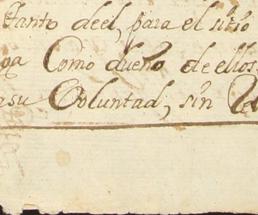 tanto deel, para el sitio
Como dueño de ellos
asu Voluntad, sin